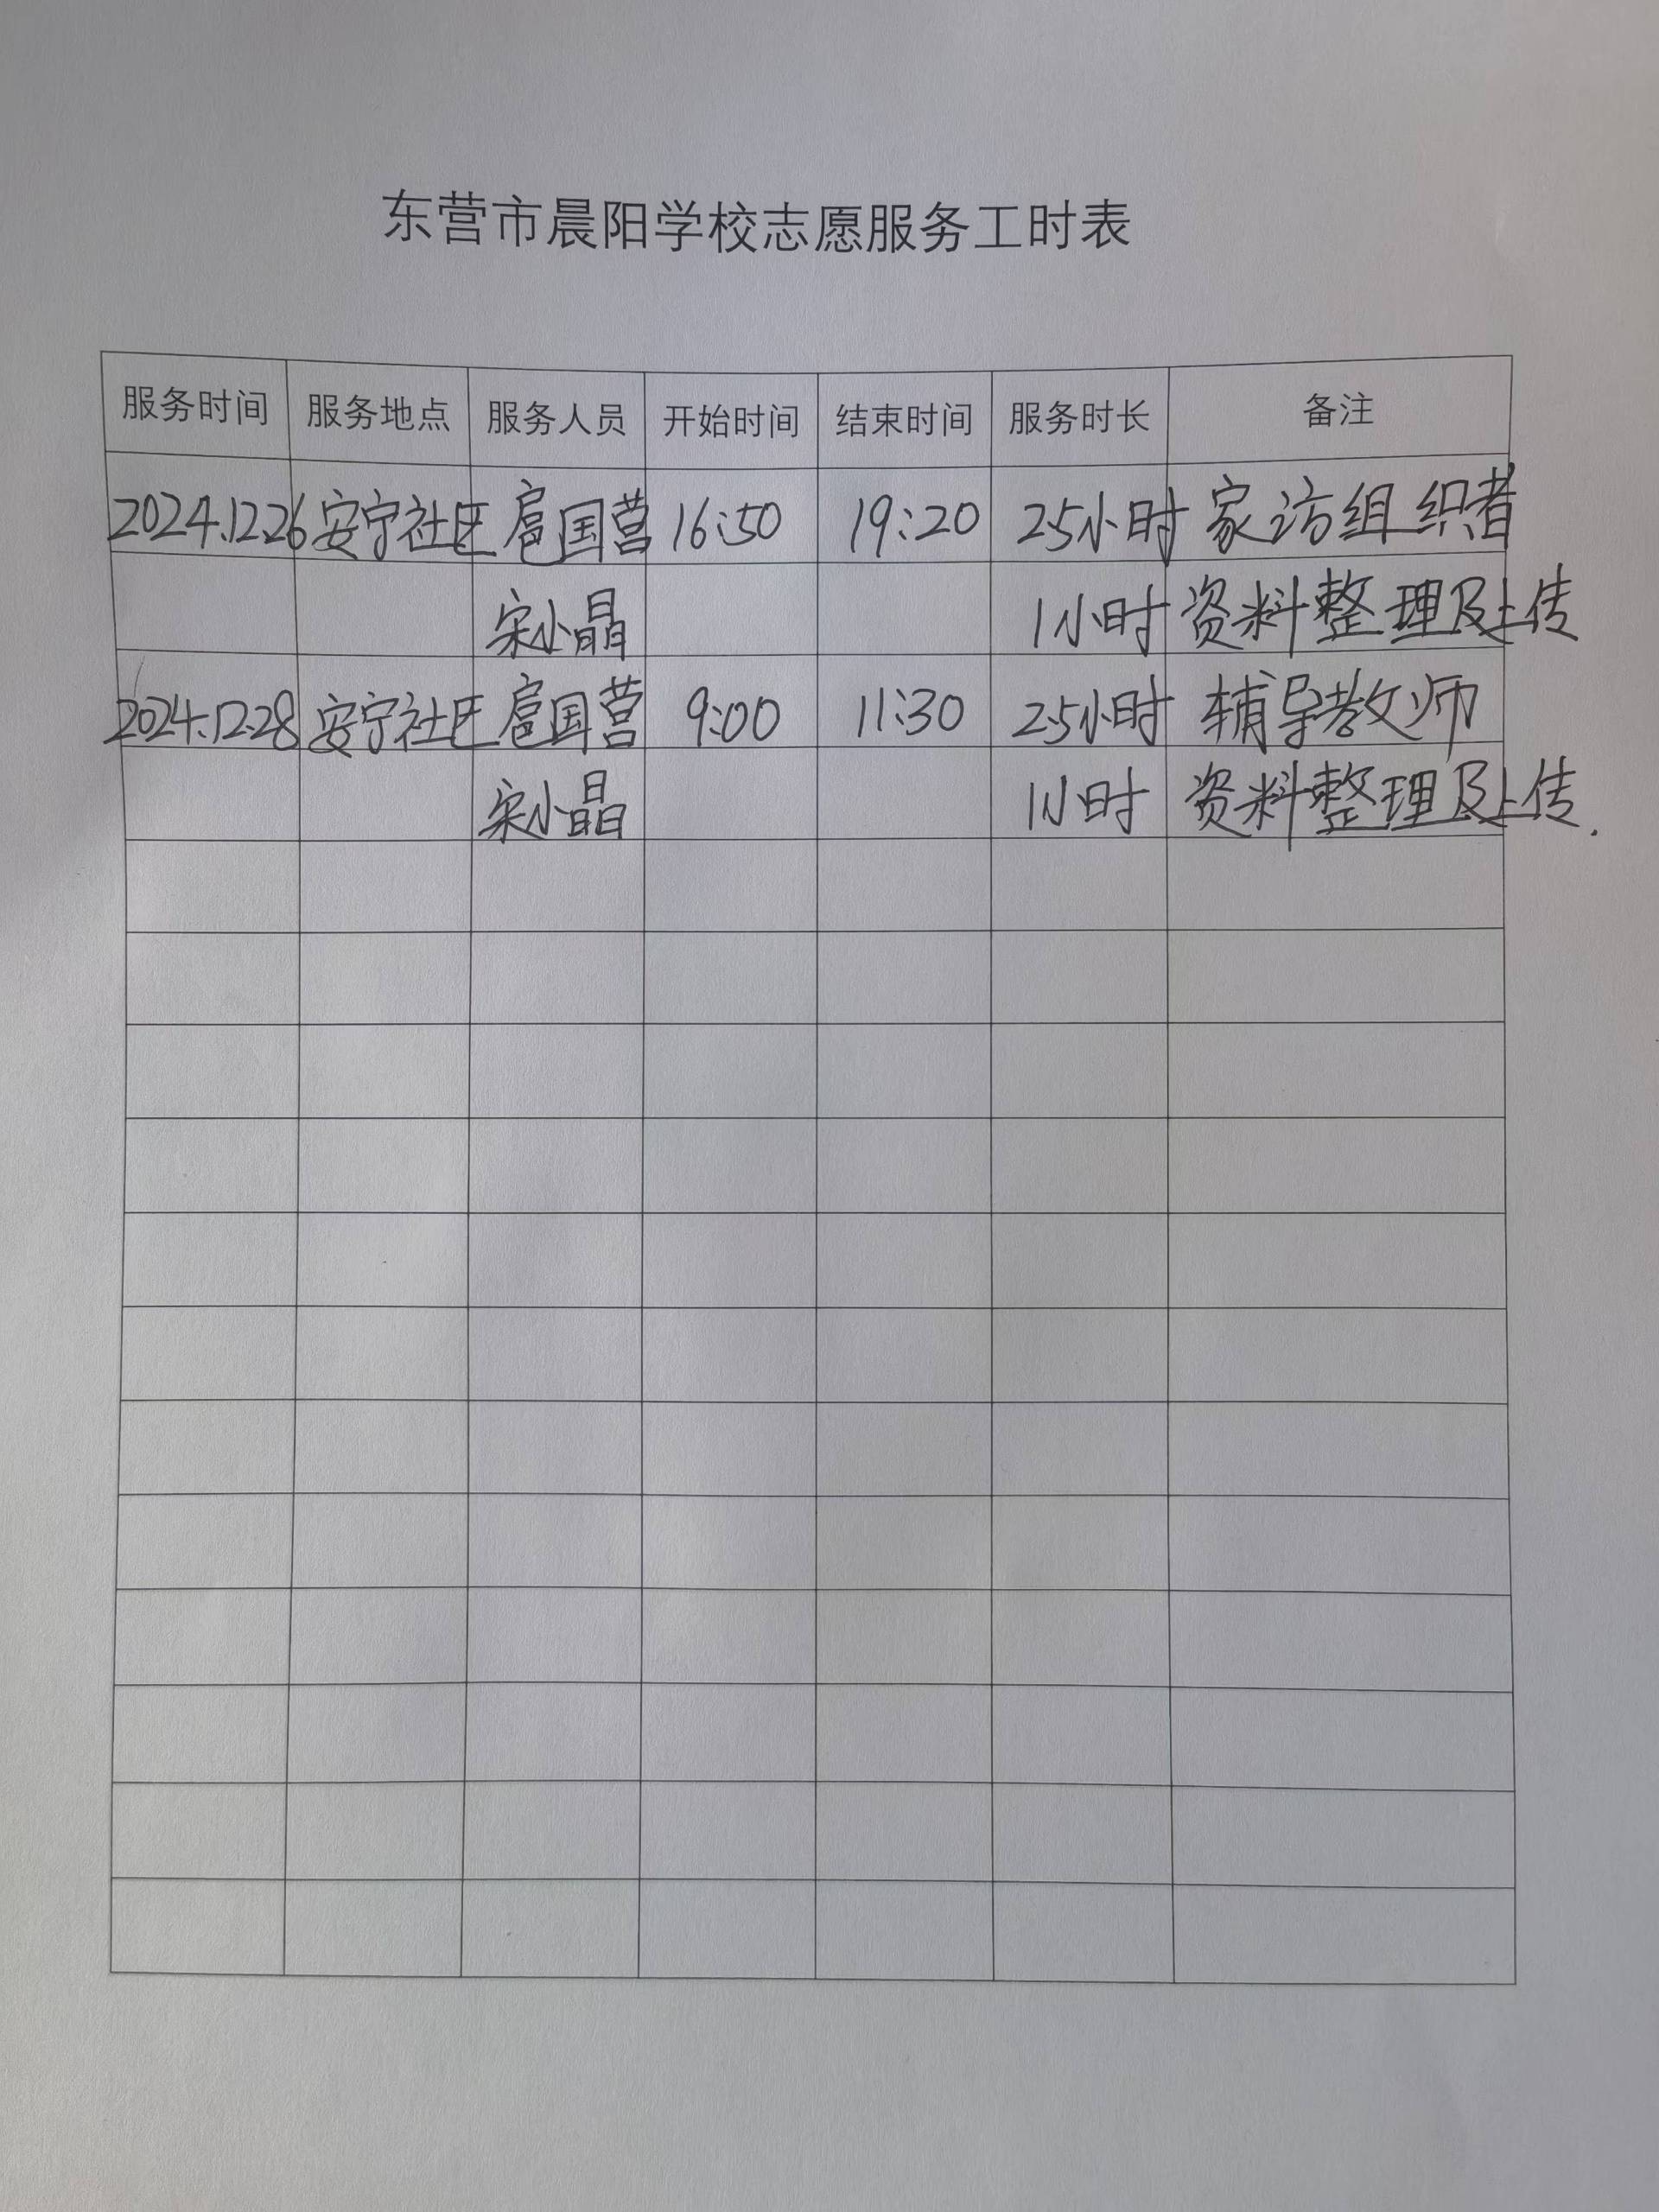 东营市晨阳学校志愿服务工时表
服务时间 服务地点 服务人员 开始时间 结束时间 服务时长 备注
2024.12.26 安宁社区 扈国营 16:50 19:20 2.5小时 家访组织者
宋小晶 1小时 资料整理及上传
2024.12.28 安宁社区 扈国营 9:00 11:30 2.5小时 辅导教师
宋小晶 1小时 资料整理及上传.